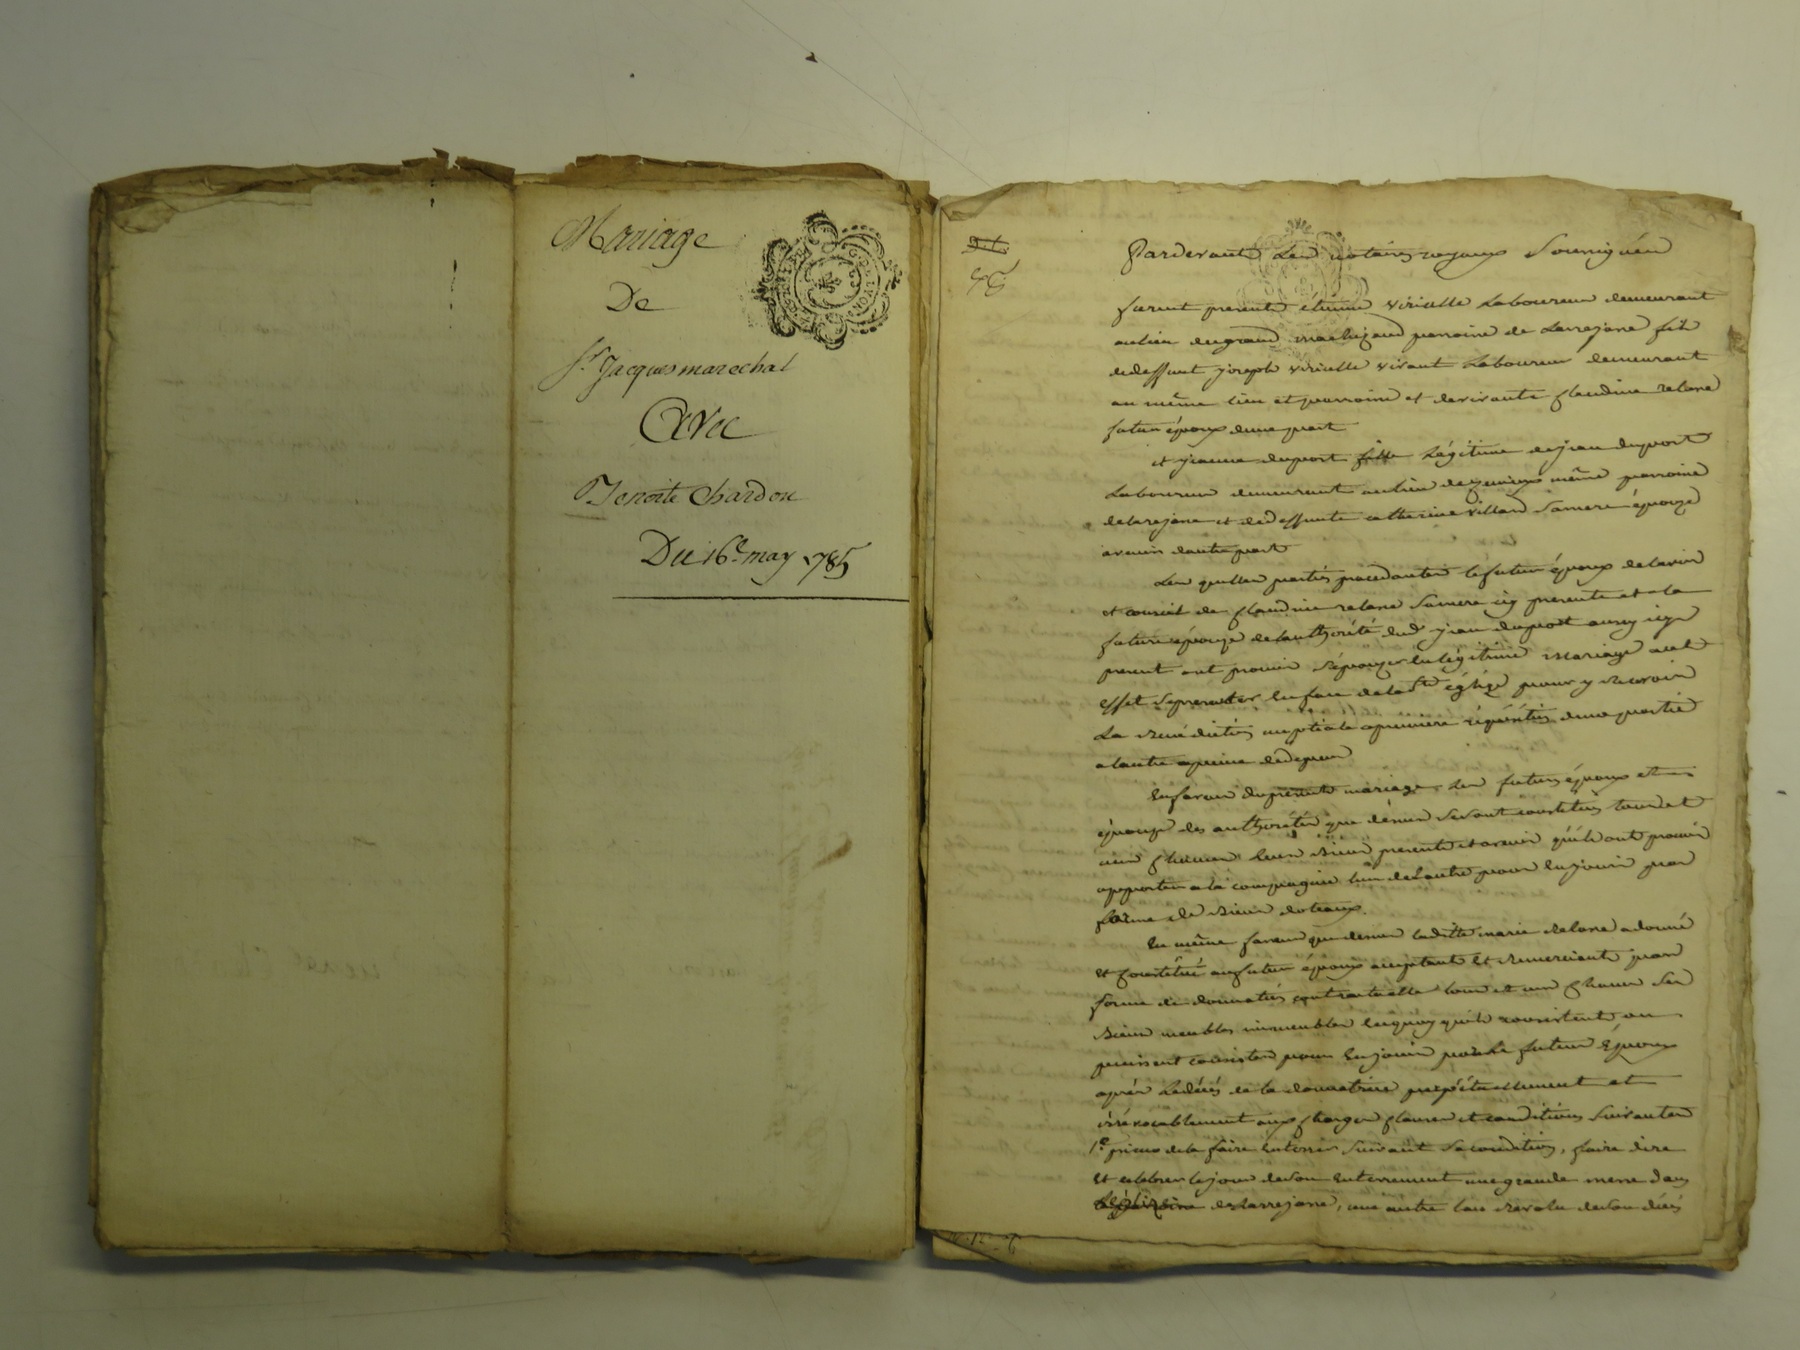 Mariage
De
Sr. Jacques marechal
Avec
Benoite Chardon
Du 16e. may 1785
Pardevant Les notaires royaux Soussignés
furent presents étienne viriclle Laboureur demeurant
au lieu du grand parroisse de Larrajasse fils
de deffunt joseph viriclle vivant Laboureur demeurant
au même lieu et parroisse et de vivante
futur époux d'une part
et jeanne dupont fille Légitime de jean dupont
Laboureur demeurant au lieu de même parroisse
de larajasse et de deffunte catherine villard Sa mere épouze
avenir d'autre part
Les quelles parties procedantes le futur époux de l'avis
et conseil de Sa mere icy presente et la
future épouze de l'authorité dud. jean dupont aussy icy
present ont promis s'épouzer en légitime Mariage a cet
effet se presenter en face de la Ste église pour y recevoir
La Benediction nuptiale a premiere réquisition d'une partie
a l'autre a peine de depens
En faveur du present mariage, Les futurs époux et
épouze des authorités que dessus se sont constitués tous et
uns chacuns Leurs Biens presents et avenir qu'ils ont promis
apporter a la compagnie l'un de L'autre pour en jouir par
forme de Biens dotaux.
En même faveur que dessus laditte marie a donné
et constitué au futur époux acceptant et remerciant par
forme de donnation contractuelle tous et uns chacuns Ses
Biens meubles immeubles en quoy qu'ils consistent ou
puissent consister pour en jouir par Le futur Epoux
après Le décès de la donnatrice perpétuellement et
irrévocablement aux charges clauses et conditions Suivantes
1°. de la faire enterrer Suivant Sa condition, faire dire
et celebrer le jour de Son enterrement une grande messe dans
L'église de Larrajasse, une autre l'an revolu de Son décès